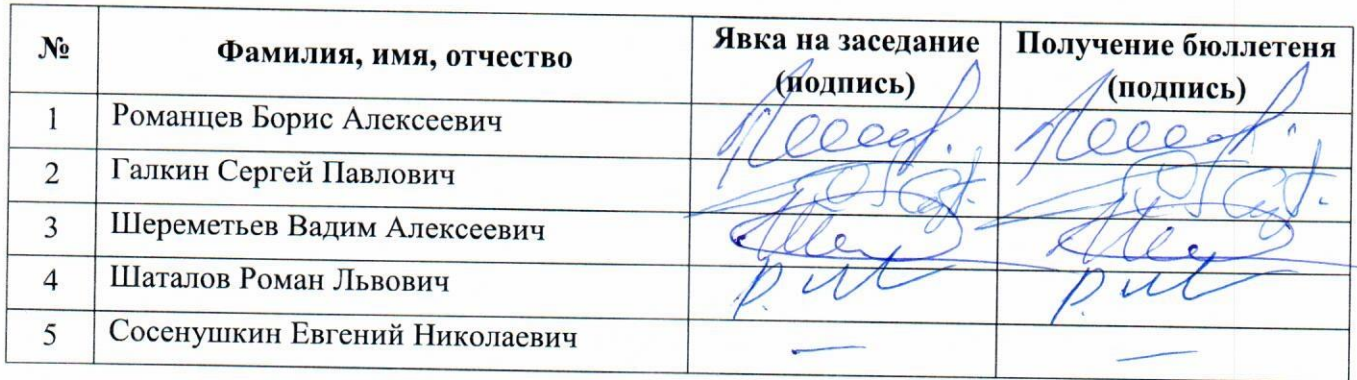 № Фамилия, имя, отчество Явка на заседание (подпись) Получение бюллетеня (подпись)
1 Романцев Борис Алексеевич
2 Галкин Сергей Павлович
3 Шереметьев Вадим Алексеевич
4 Шаталов Роман Львович
5 Сосенушкин Евгений Николаевич — —